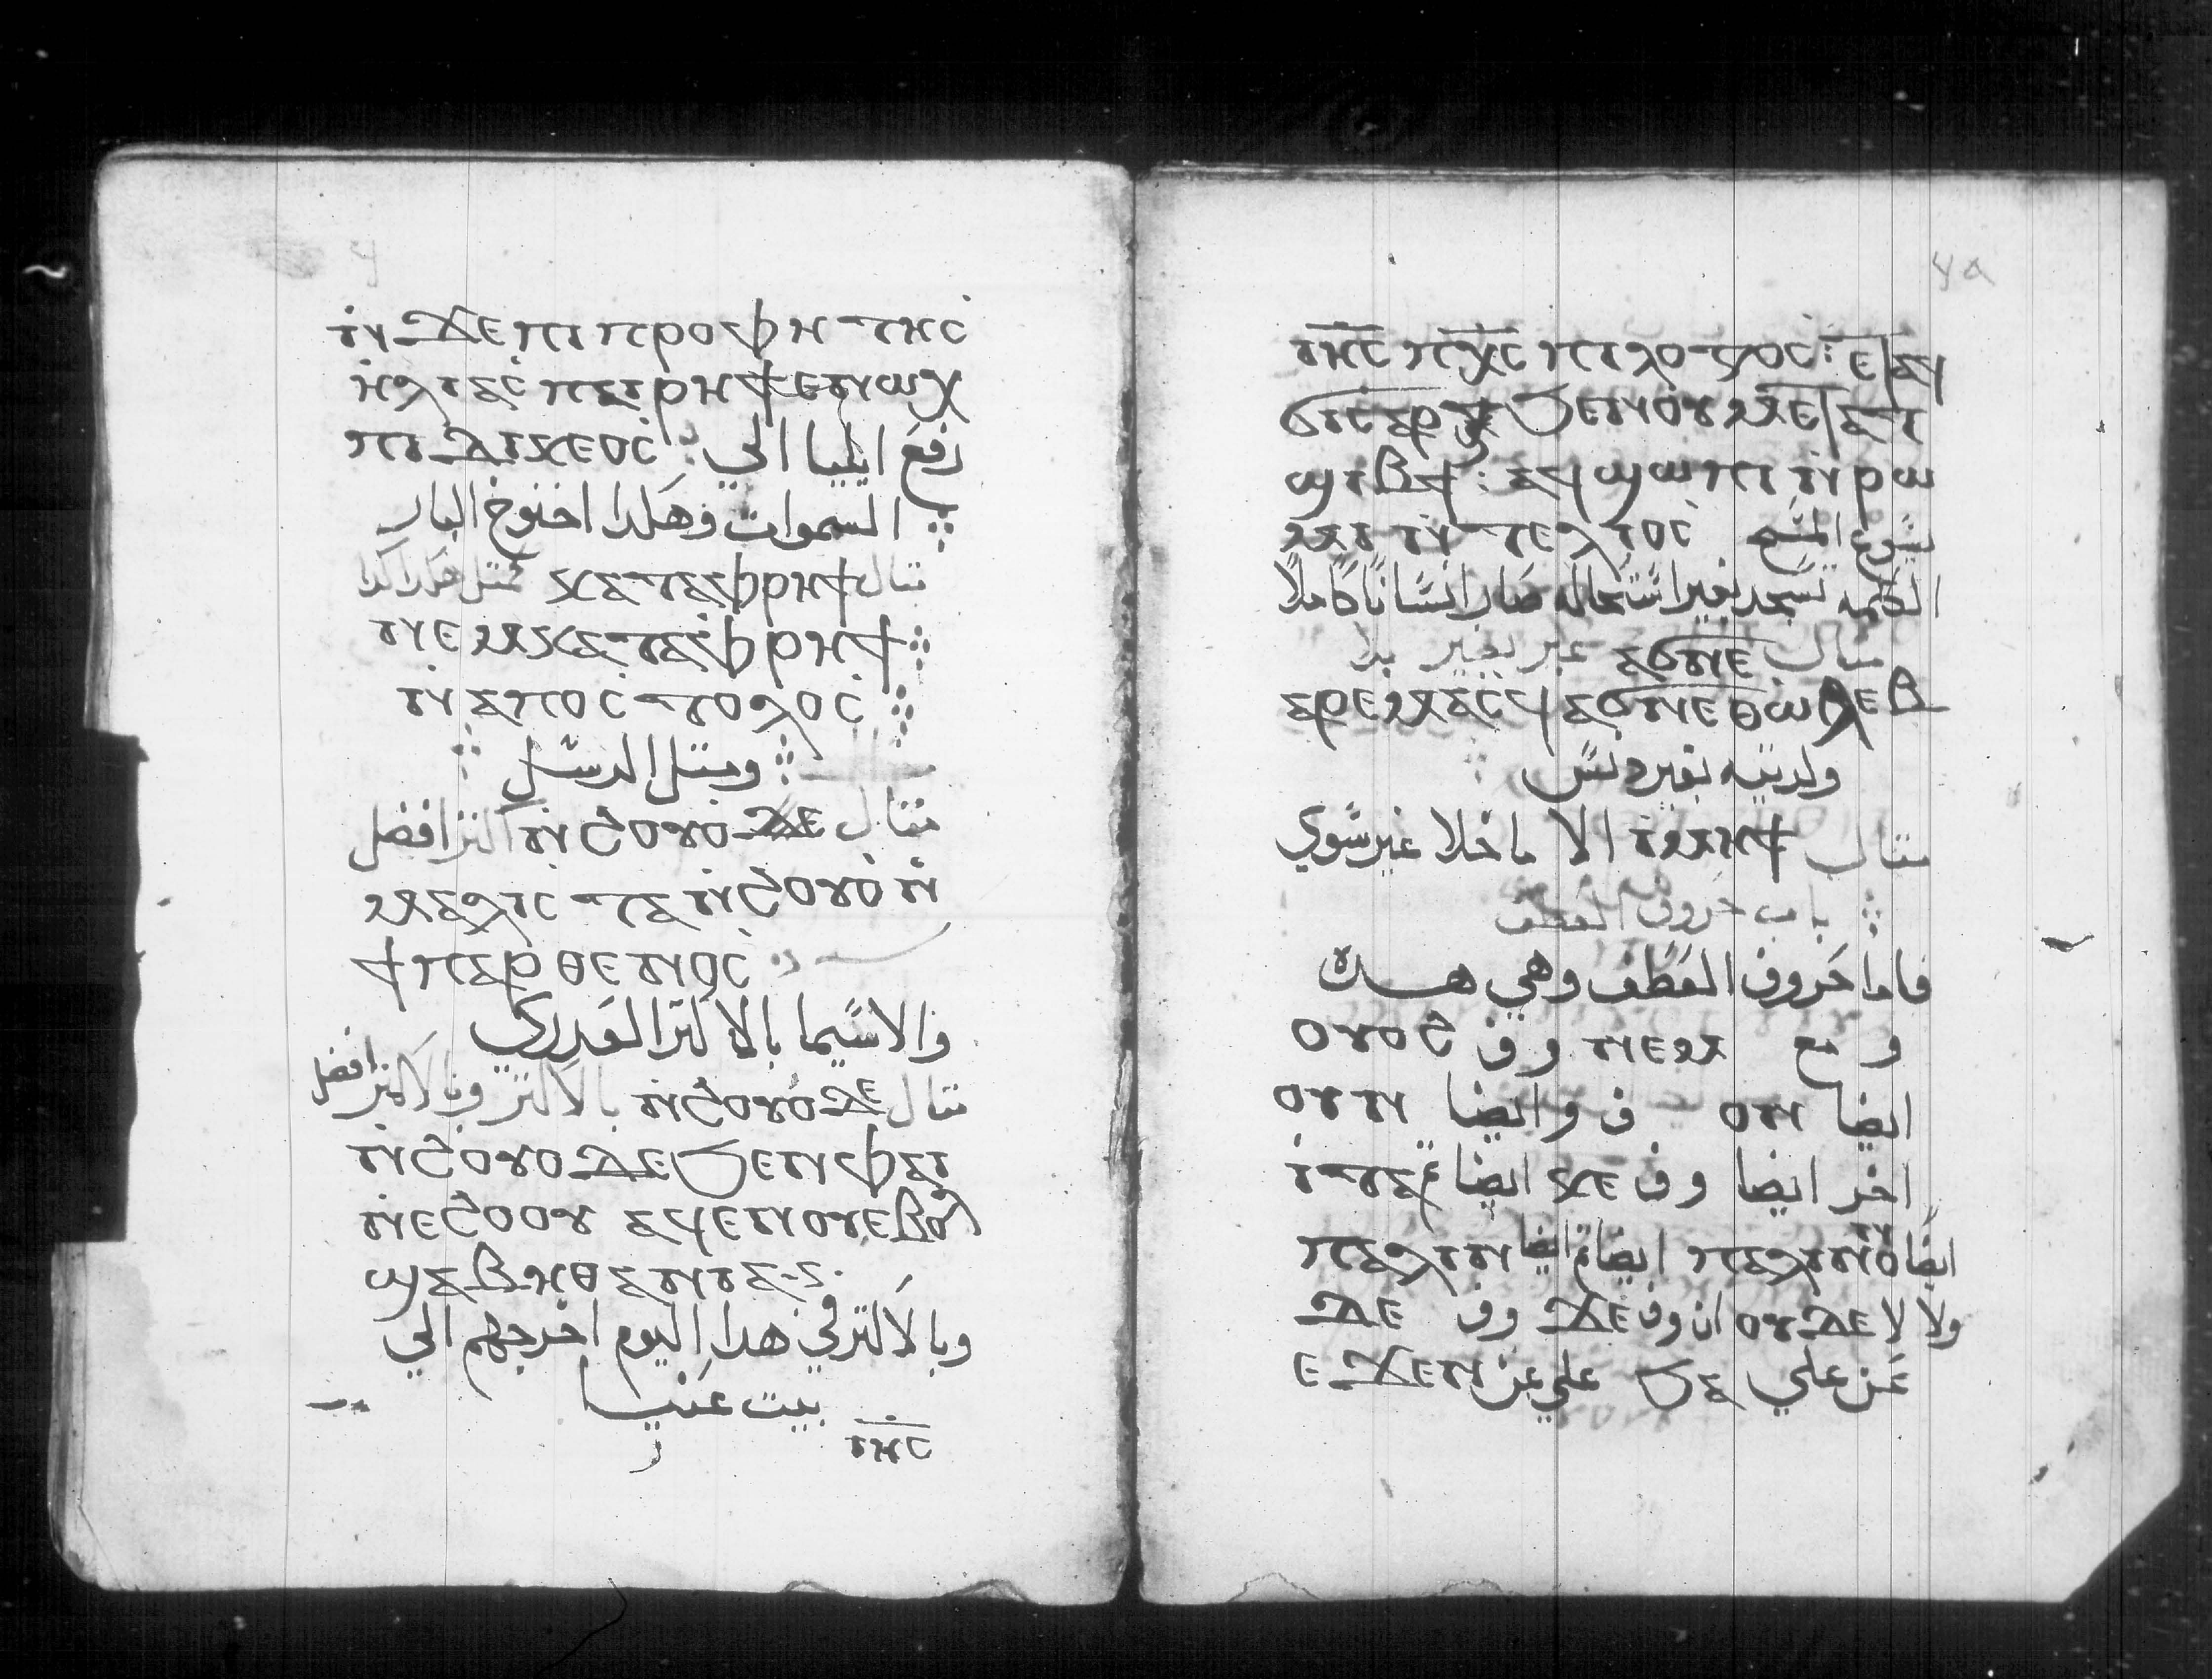 ⲛ̀ϫⲉ ⲡⲓⲡⲣⲟⲫⲏⲧⲏⲥ
ⲏⲗⲓⲁⲥ ⲡⲁⲓⲣⲏϯ ⲉⲛⲱⲭ
ⲡⲓⲇⲓⲕⲉⲟⲥ رفع ايليا الي
السموات وهكدا اخنوخ البار
مثال ⲕⲁⲧⲁⲫⲣⲏϯ كمثل هكدا كدا
ⲛⲉⲙ ⲕⲁⲧⲁⲫⲣⲏϯ
ⲛ̀ⲁⲡⲟⲥⲧⲟⲗⲟⲥ
ومثل الرسل
مثال ⲛ̀ϩⲟⲩⲟ ϫⲉ اكثر افضل
ⲙⲁⲗⲓⲥⲧⲁ ⲛ̀ϩⲟⲩⲟ ⲛ̀
ϯⲡⲁⲣⲑⲉⲛⲟⲥ
والاسيما بالاكثر العدري
مثال ⲛ̀ϩⲟⲩⲟ ϫⲉ بالاكثر وبالاكثر افضل
ⲛ̀ϩⲟⲩⲟ ϫⲉ ϧⲉⲛ ⲫⲁⲓ
ⲛ̀ⲉϩⲟⲟⲩ ⲁϥⲉⲛⲟⲩ ⲉⲃⲟⲗ
ϣⲁ ⲃⲏⲑⲁⲛⲓⲁ
وبالاكثر في هدا اليوم اخرجهم الي
بيت عنيا
ⲓⲏⲥ
ⲓⲏⲥ ⲡⲭⲥ ⲡⲓⲗⲟⲅⲟⲥ ⲉⲧⲁϥ
ϭⲓⲥⲁⲣⲝ ϧⲉⲛ ⲟⲩⲙⲉⲧⲁⲧ
ϣⲓⲃϯ ⲁϥϣⲱⲡⲓ ⲛ̀ⲣⲱ
ⲙⲓ ⲛ̀ⲧⲉⲗⲓⲟⲥ يسوع المسيح
الكلمه تجسد بغير استحاله صار انسانا كاملا
مثال ⲁϭⲛⲉ غير بغير بلا
ⲁⲣⲉⲙⲁⲥϥ ⲁϭⲛⲉ ⲑⲱⲗⲉⲃ
ولدتيه بغير دنس
مثال ⲓⲙⲏϯ الا ما خلا غير سوي
باب حروف العطف
فاما حروف العطف وهي هده
و مع ⲛⲉⲙ و ف ϩⲟⲩⲟ
ايضا ⲟⲛ ف وايضا ⲟⲩⲛ
اخر ايضا وف ⲕⲉ ايضا ⲓⲧⲁ
ايضا ⲡⲁⲗⲓⲛ ايضا ⲡⲁⲗⲓⲛ
ولا لا ⲟⲩⲇⲉ ان وف ϫⲉ وف ⲇⲉ
عن علي ϧⲁ علي عن ⲉϫⲉⲛ